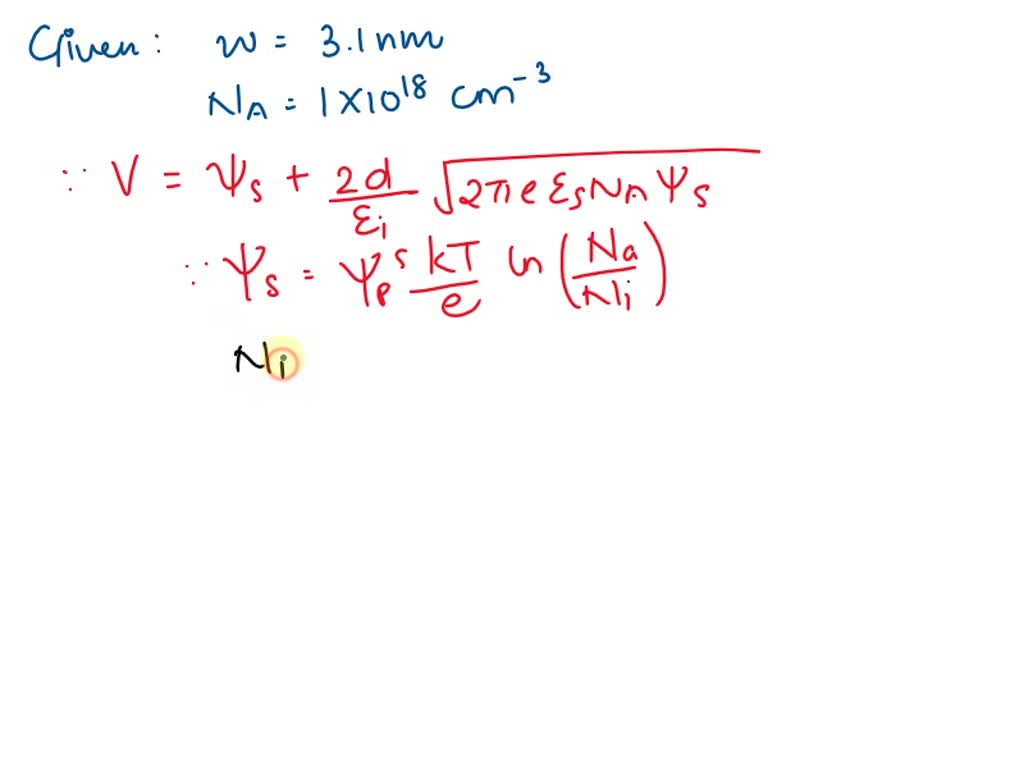 Given: w = 3.1 nm
N_A = 1 X 10^18 cm^-3
∵ V = Ψ_s + 2d/ε_i √(2π e ε_s N_A Ψ_s)
∵ Ψ_s = Ψ_p^s kT/e ln (N_a/N_i)
N_i